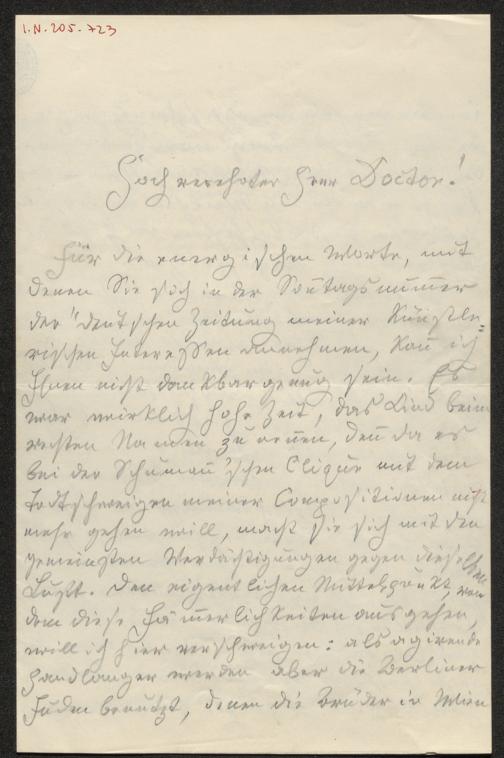 I.N. 205.723
Hochverehrter Herr Doctor!
Für die energischen Worte, mit
denen Sie sich in der Sonntagsnummer
der "Deutschen Zeitung meiner künstle=
rischen Interessen annehmen, kan̄ ich
Ihnen nicht dankbar genug sein. Es
war wirklich hohe Zeit, das Kind beim
rechten Namen zu nen̄en, den̄ da es
bei der Schuman̄'schen Clique mit dem
Todtschweigen meiner Compositionen nicht
mehr gehen will, macht sie sich mit den
gemeinsten Verdächtigungen gegen dieselben
Luft. Den eigentlichen Mittelpunkt, von
dem diese Jäm̄erlichkeiten ausgehen,
will ich hier verschweigen: als agirende
Handlanger werden aber die Berliner
Juden benützt, denen die Brüder in Wien